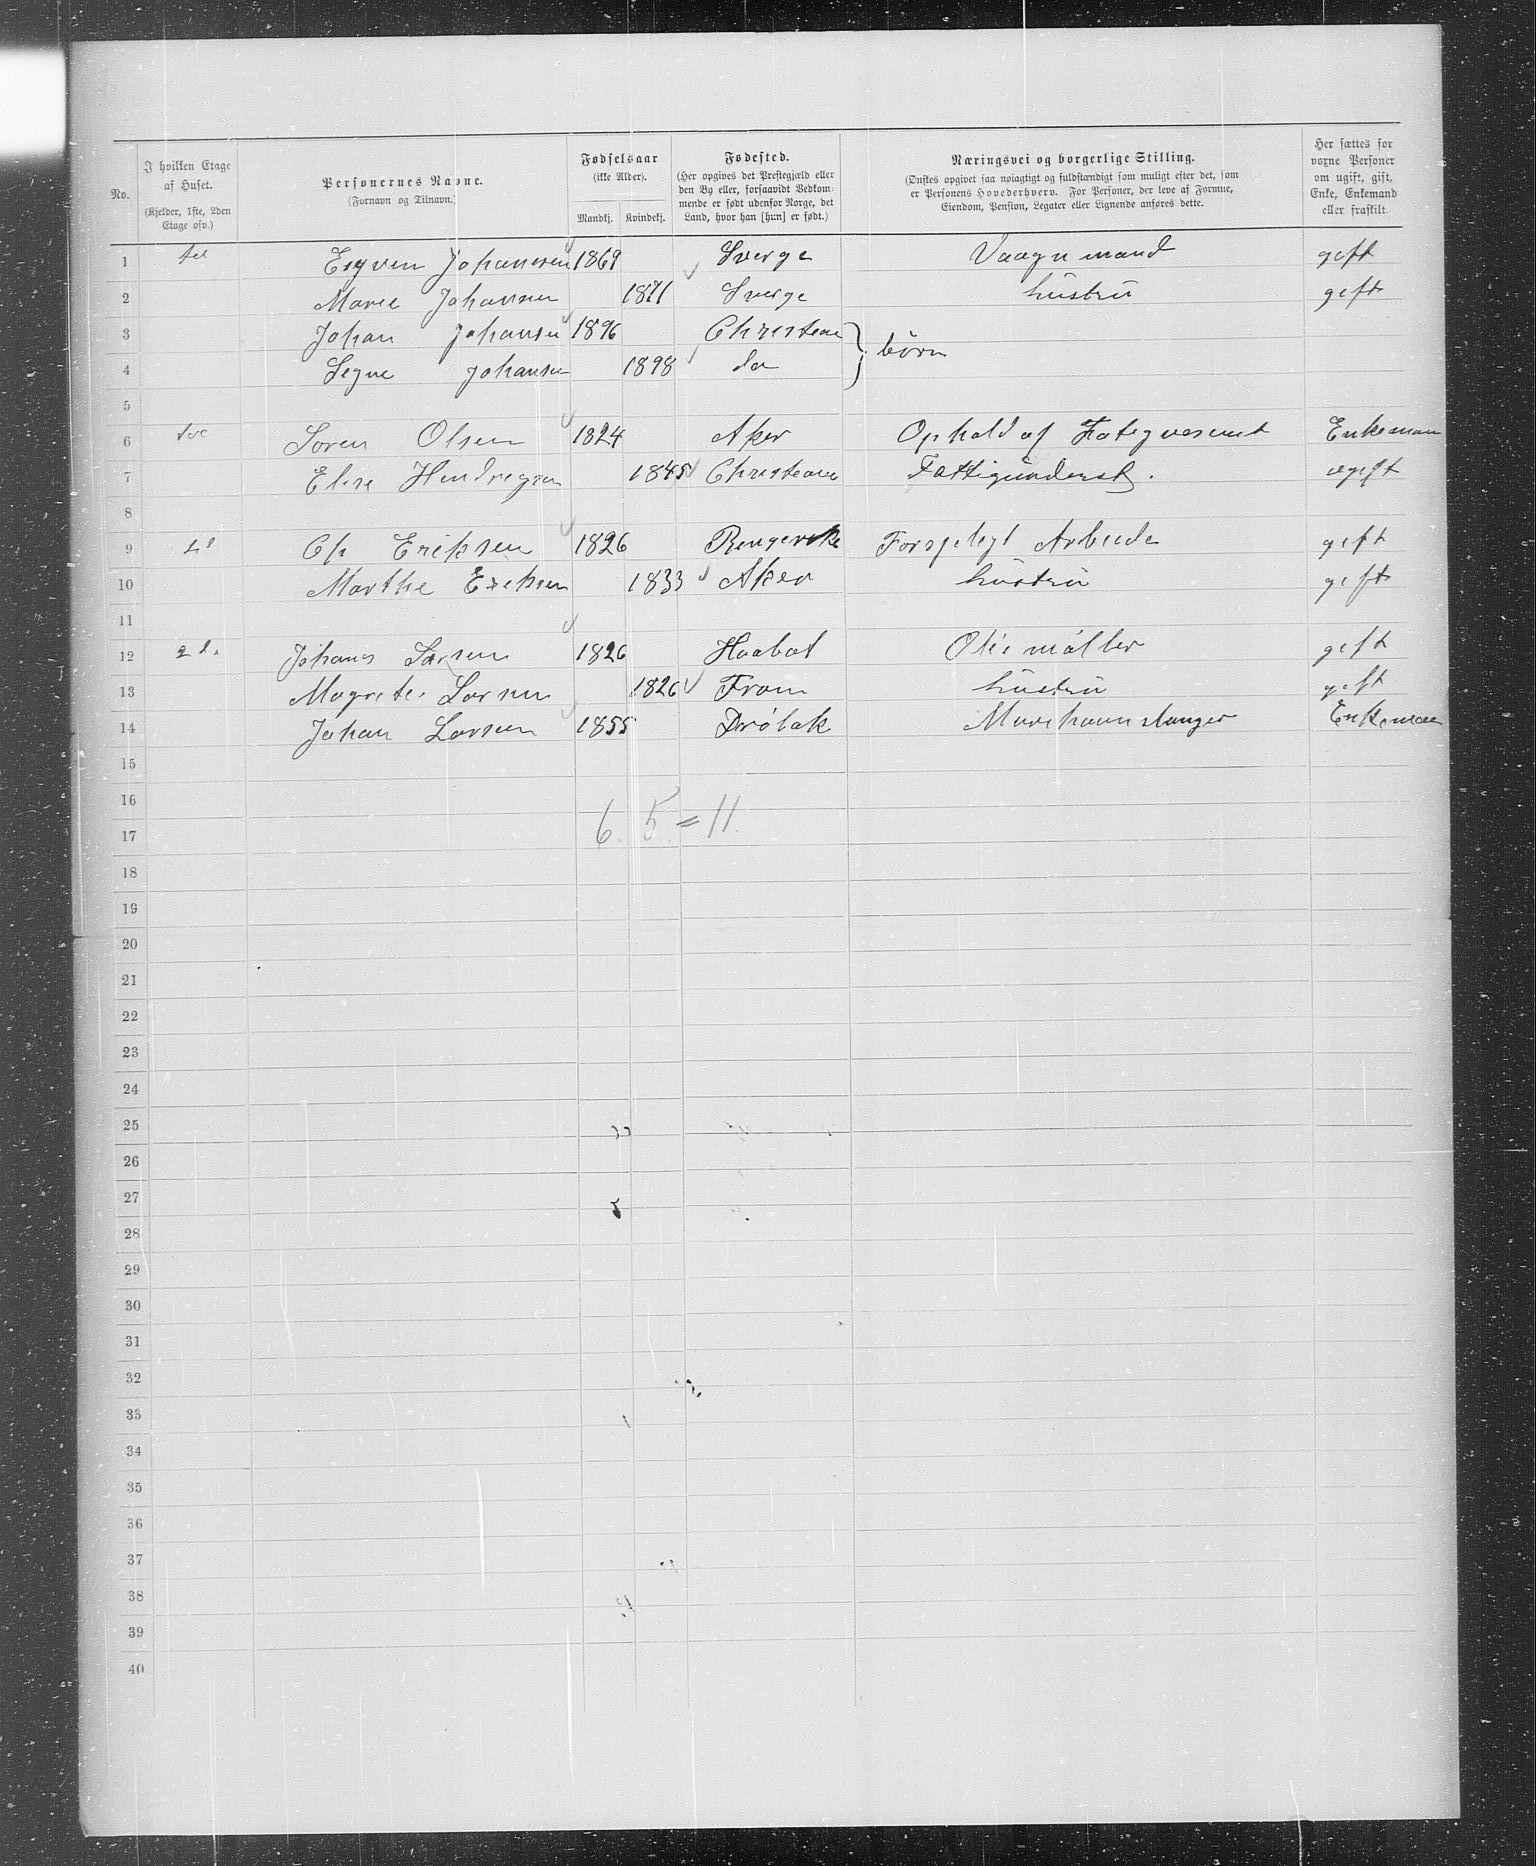 No.
I hvilken Etage af Huset.
(Kjelder, 1ste, 2den Etage osv.)
Personernes Navne.
(Fornavn og Tilnavn.)
Fødselsaar
(ikke Alder).
Mandkj. Kvindekj.
Fødested.
(Her opgives det Prestegjæld eller den By eller, forsaavidt Vedkommende er født udenfor Norge, det Land, hvor han [hun] er født.)
Næringsvei og borgerlige Stilling.
(Ønskes opgivet saa nøiagtigt og fuldstændigt som muligt efter det, som er Personens Hovederhverv. For Personer, der leve af Formue, Eiendom, Pension, Legater eller Lignende anføres dette.
Her sættes for voxne Personer om ugift, gift, Enke, Enkemand eller fraskilt.
1 Johannesen 1869 Sverge Vaagnmand geft
2 Marie Johansen 1871 Sverge hustru geft
3 Johan Johansen 1896 Christean
4 Segne Johansen 1898 do } børn
5
6 Soren Olsen 1824 Aker Ophold af Fategvesent Enkeman
7 Elise 1845 Christeane Fattigunderst. ugift
8
9 Ch Eriksen 1826 Rengerike Forsplegt Arbeide geft
10 Marthe Ereksen 1833 Aker hustru geft
11
12 2d. Johans Larsen 1826 Haabøl Oliemøller geft
13 Magrete Larsen 1826 Fron hustru geft
14 Johan Larsen 1855 Drøbak Murehaanslanger Enkeman
15
16
6. 5. = 11.
17
18
19
20
21
22
23
24
25
26
27
28
29
30
31
32
33
34
35
36
37
38
39
40